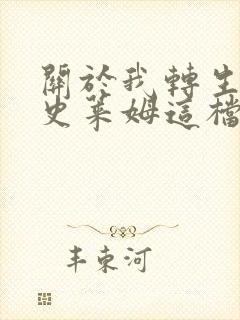 關於我轉生
史萊姆這檔
丰東河